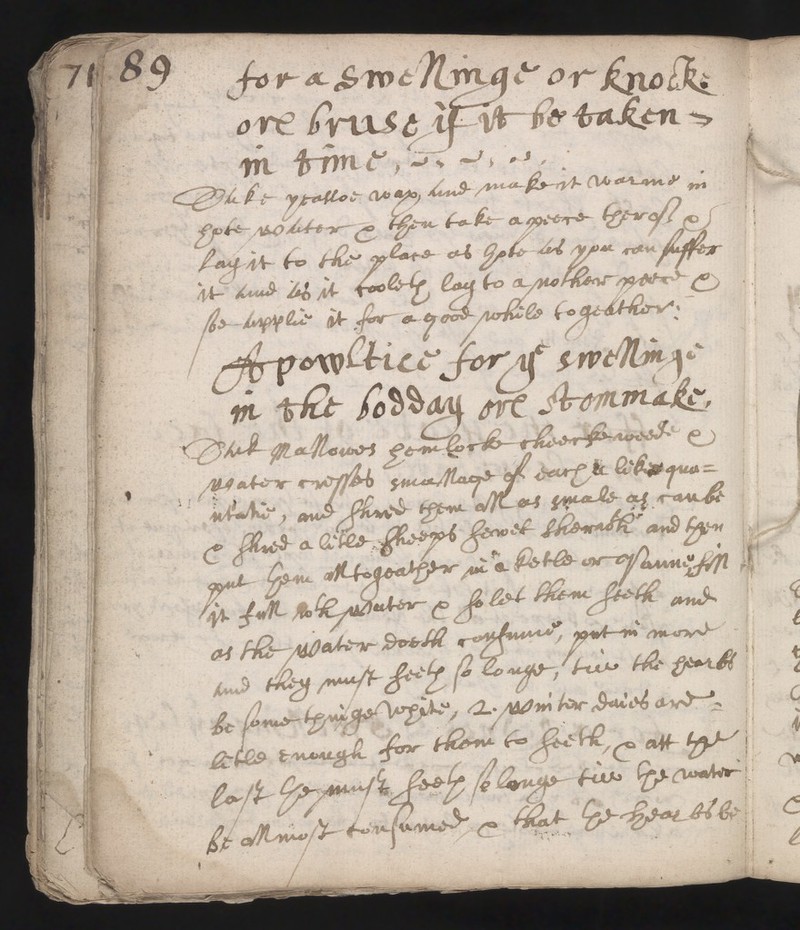 71 89
for a swellinge or knocke
ore bruse if it be taken =
in time,
Take yealloe wax, and make it warme in
hote water & then take a peece therof &
lay it to the place as hote as you can suffer
it and as it cooleth lay to a nother peece &
soe applie it for a good while togeather:
A powltice for ye swellinge
in the bodday ore stommake.
Take Mallowes hemlocke cheecke weede &
water cresses smallage of each a like qua=
ntatie, and shred them all as smale as can be
& shred a litle sheeps sewet therwith and then
put them all togeather in a ketle or a panne, fill
it full with water & so let them seeth and
as the water doeth consume, put in more
and they must seeth so longe, till the hearbs
be some thinge white, 2 winter daies are =
litle enough for them to seeth, & att the
last the must seeth so longe till the water
be allmost consumed, & that the hearbs be